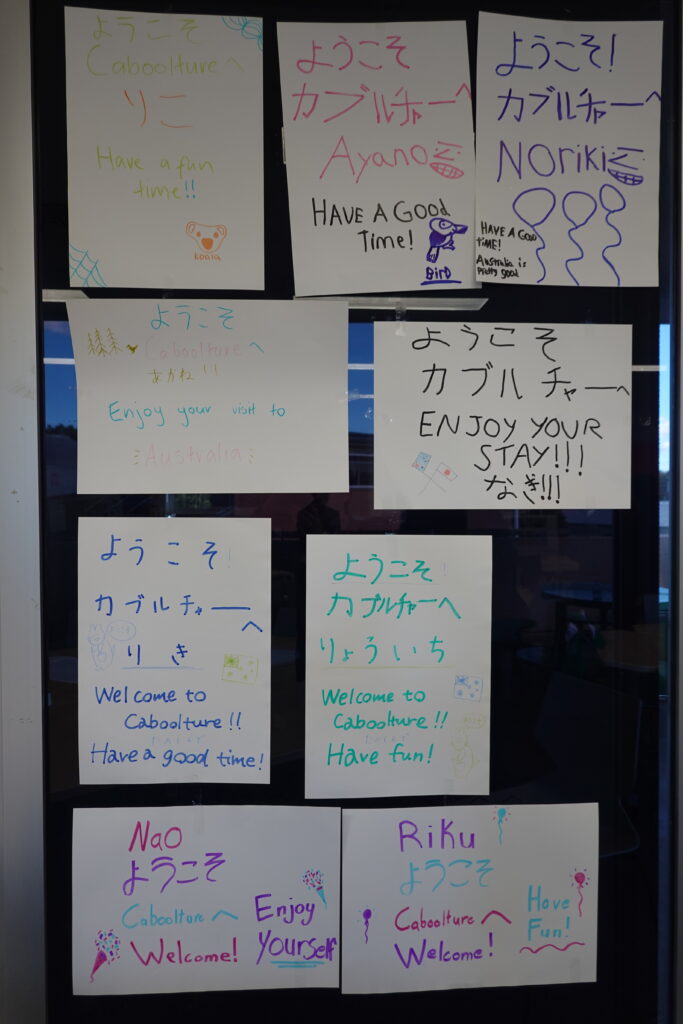 ようこそ
Cabooltureへ
りこ
Have a fun
time!!
koala
ようこそ
カブルチャーへ
Ayano
HAVE A GOOD
Time!
BirD
ようこそ!
カブルチャーへ
NOriki
HAVE A GOOD
TIME!
Australia is
Pretty good
ようこそ
Cabooltureへ
あかね!!!
Enjoy your visit to
Australia
ようこそ
カブルチャーへ
ENJOY YOUR
STAY!!!
なぎ!!!
ようこそ!
カブルチャーへ
りき
Welcome to
Caboolture!!
Have a good time!
ようこそ!
カブルチャーへ
りょういち
Welcome to
Caboolture!!
Have fun!
Nao
ようこそ
Cabooltureへ
Welcome!
Enjoy
Yourself
Riku
ようこそ
Cabooltureへ
Welcome!
Have
Fun!